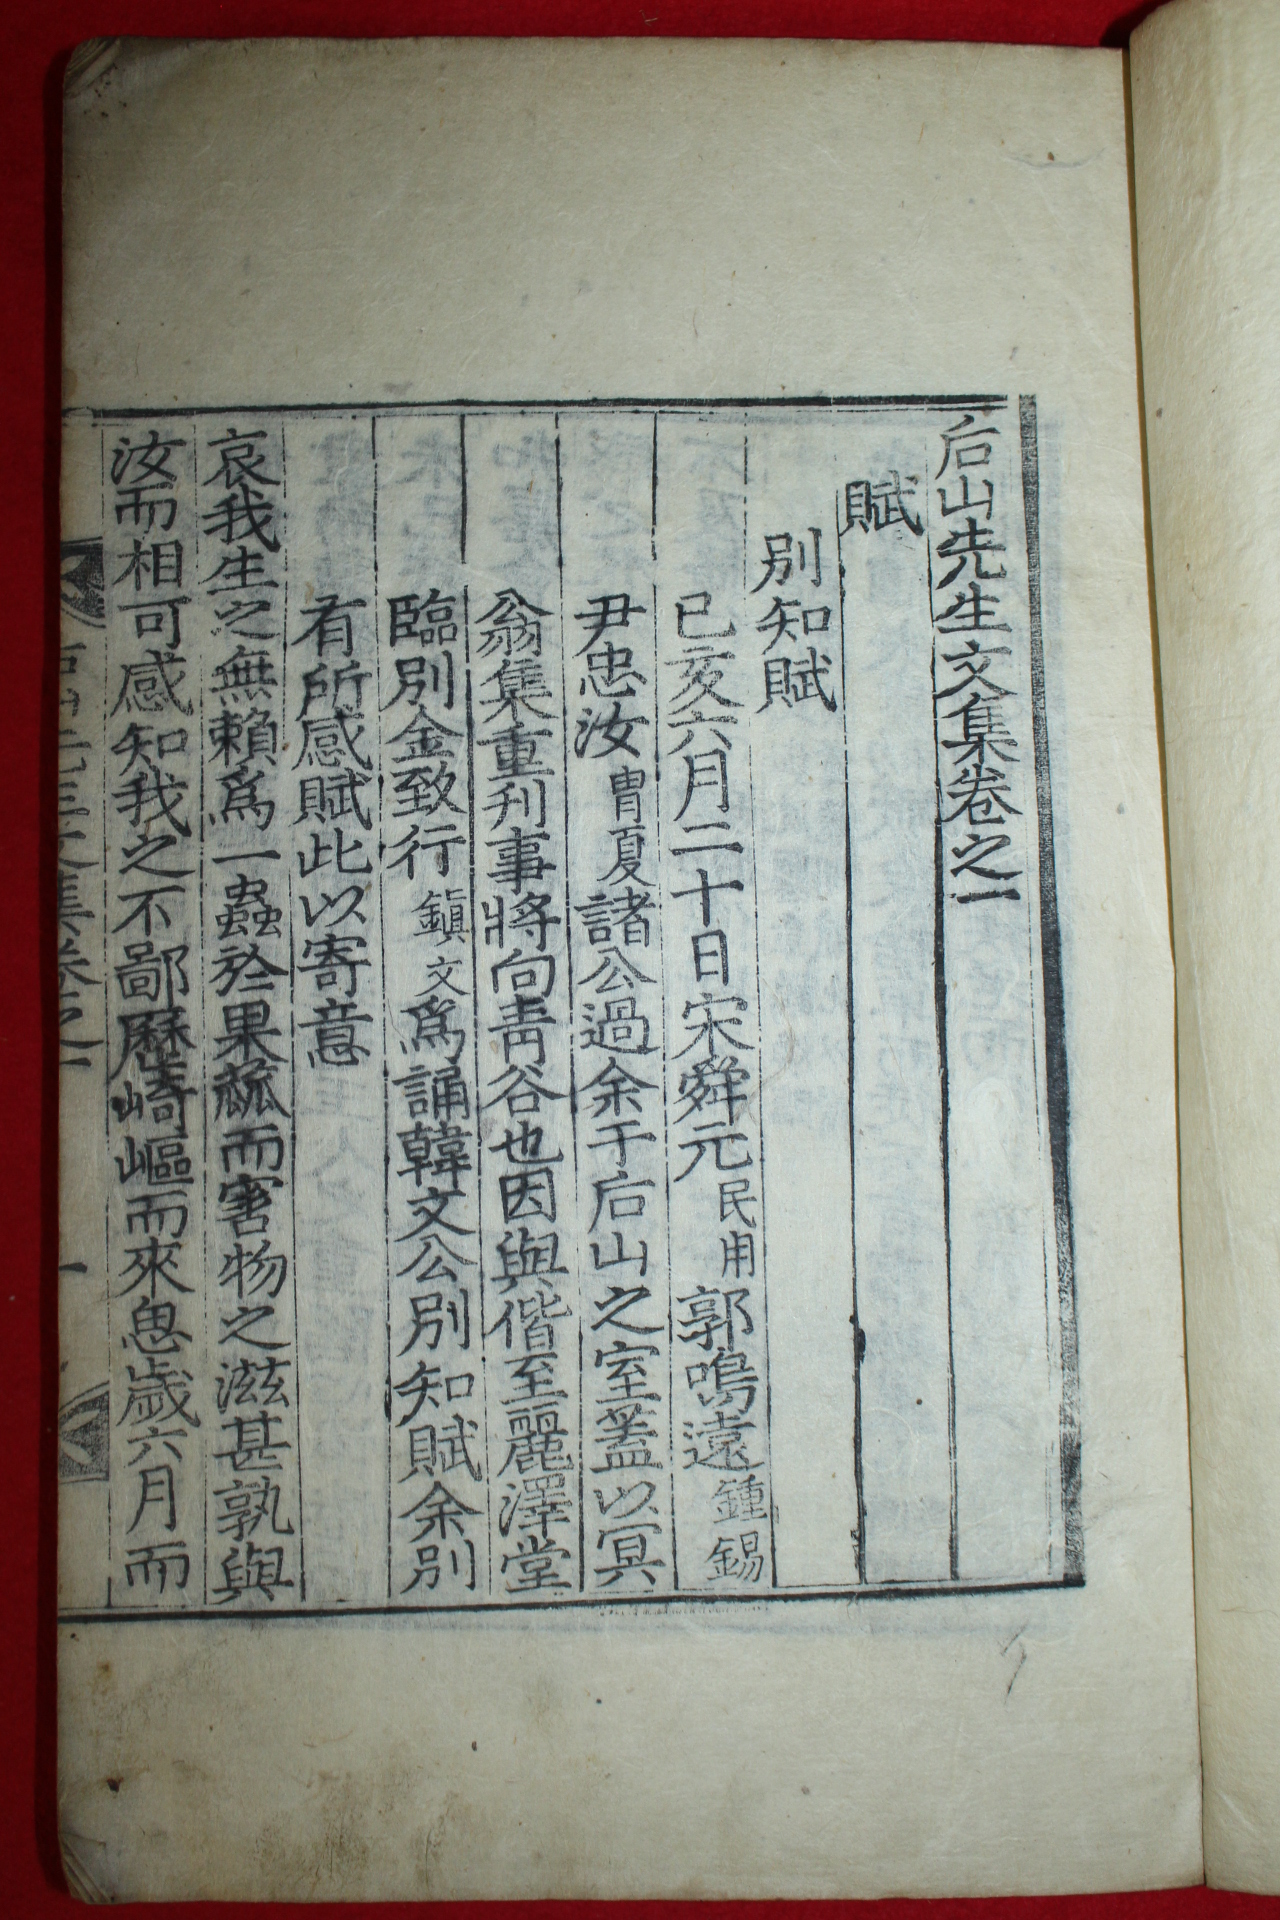 后山先生文集卷之一
賦
別知賦
己亥六月二十日宋舜元民用郭鳴遠鍾錫
尹忠汝冑夏諸公過余于后山之室蓋以冥
翁集重刊事將向靑谷也因與偕至麗澤堂
臨別金致行鎭文爲誦韓文公別知賦余別
有所感賦此以寄意
哀我生之無賴爲一蟲於果蓏而害物之滋甚孰與
汝而相可感知我之不鄙歷崎嶇而來思歲六月而
后山先生文集卷之一
一